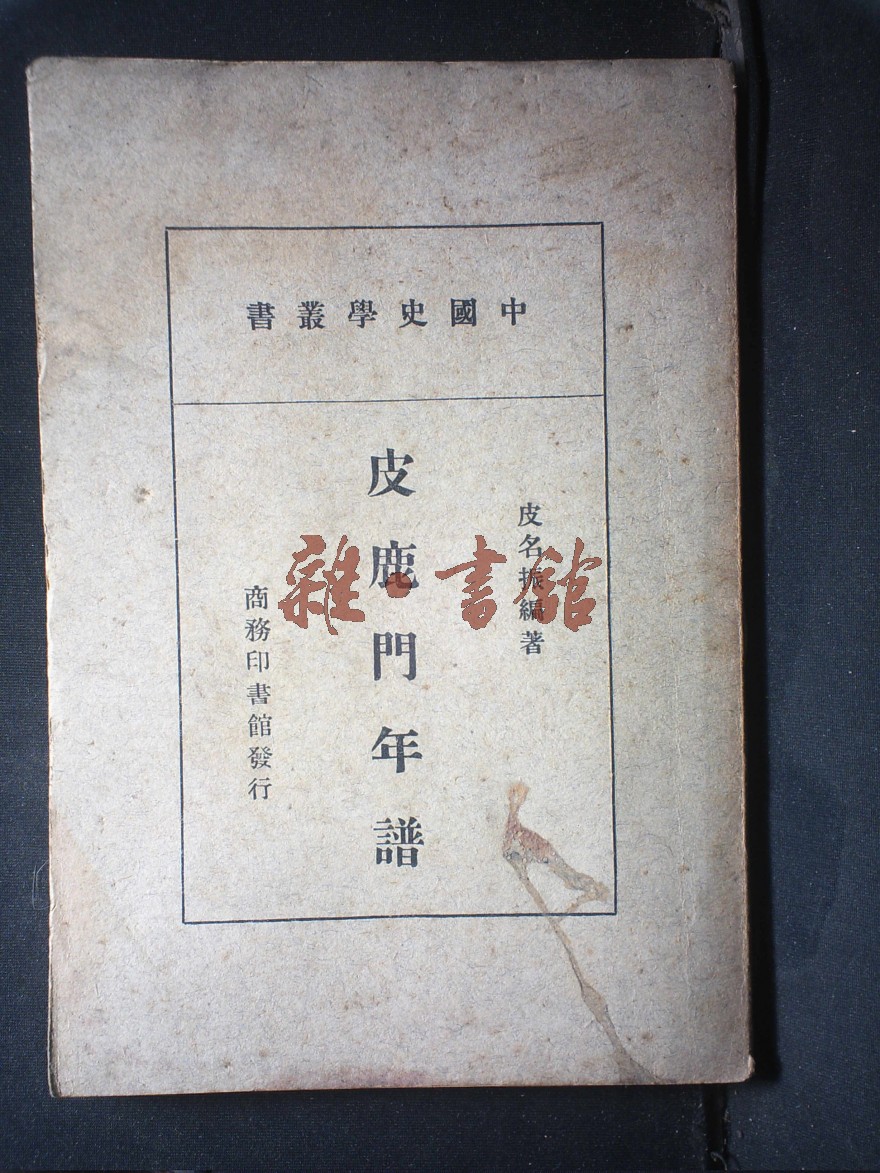 中國史學叢書
皮名振編著
皮鹿門年譜
商務印書館發行
雜·書館